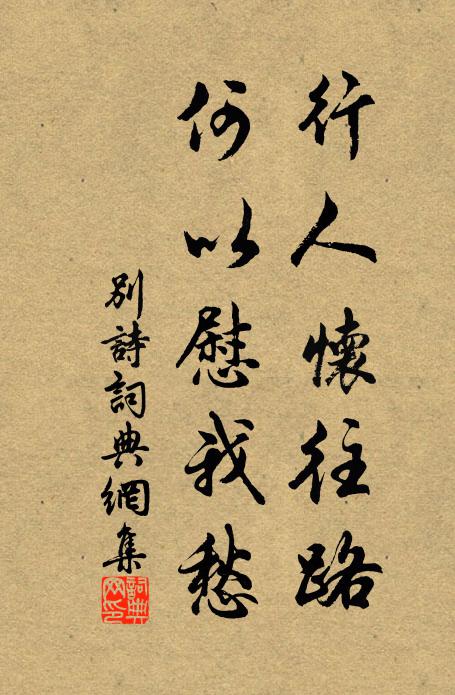 行人懷往路
何以慰我愁
別詩詞典網集
詞典网印